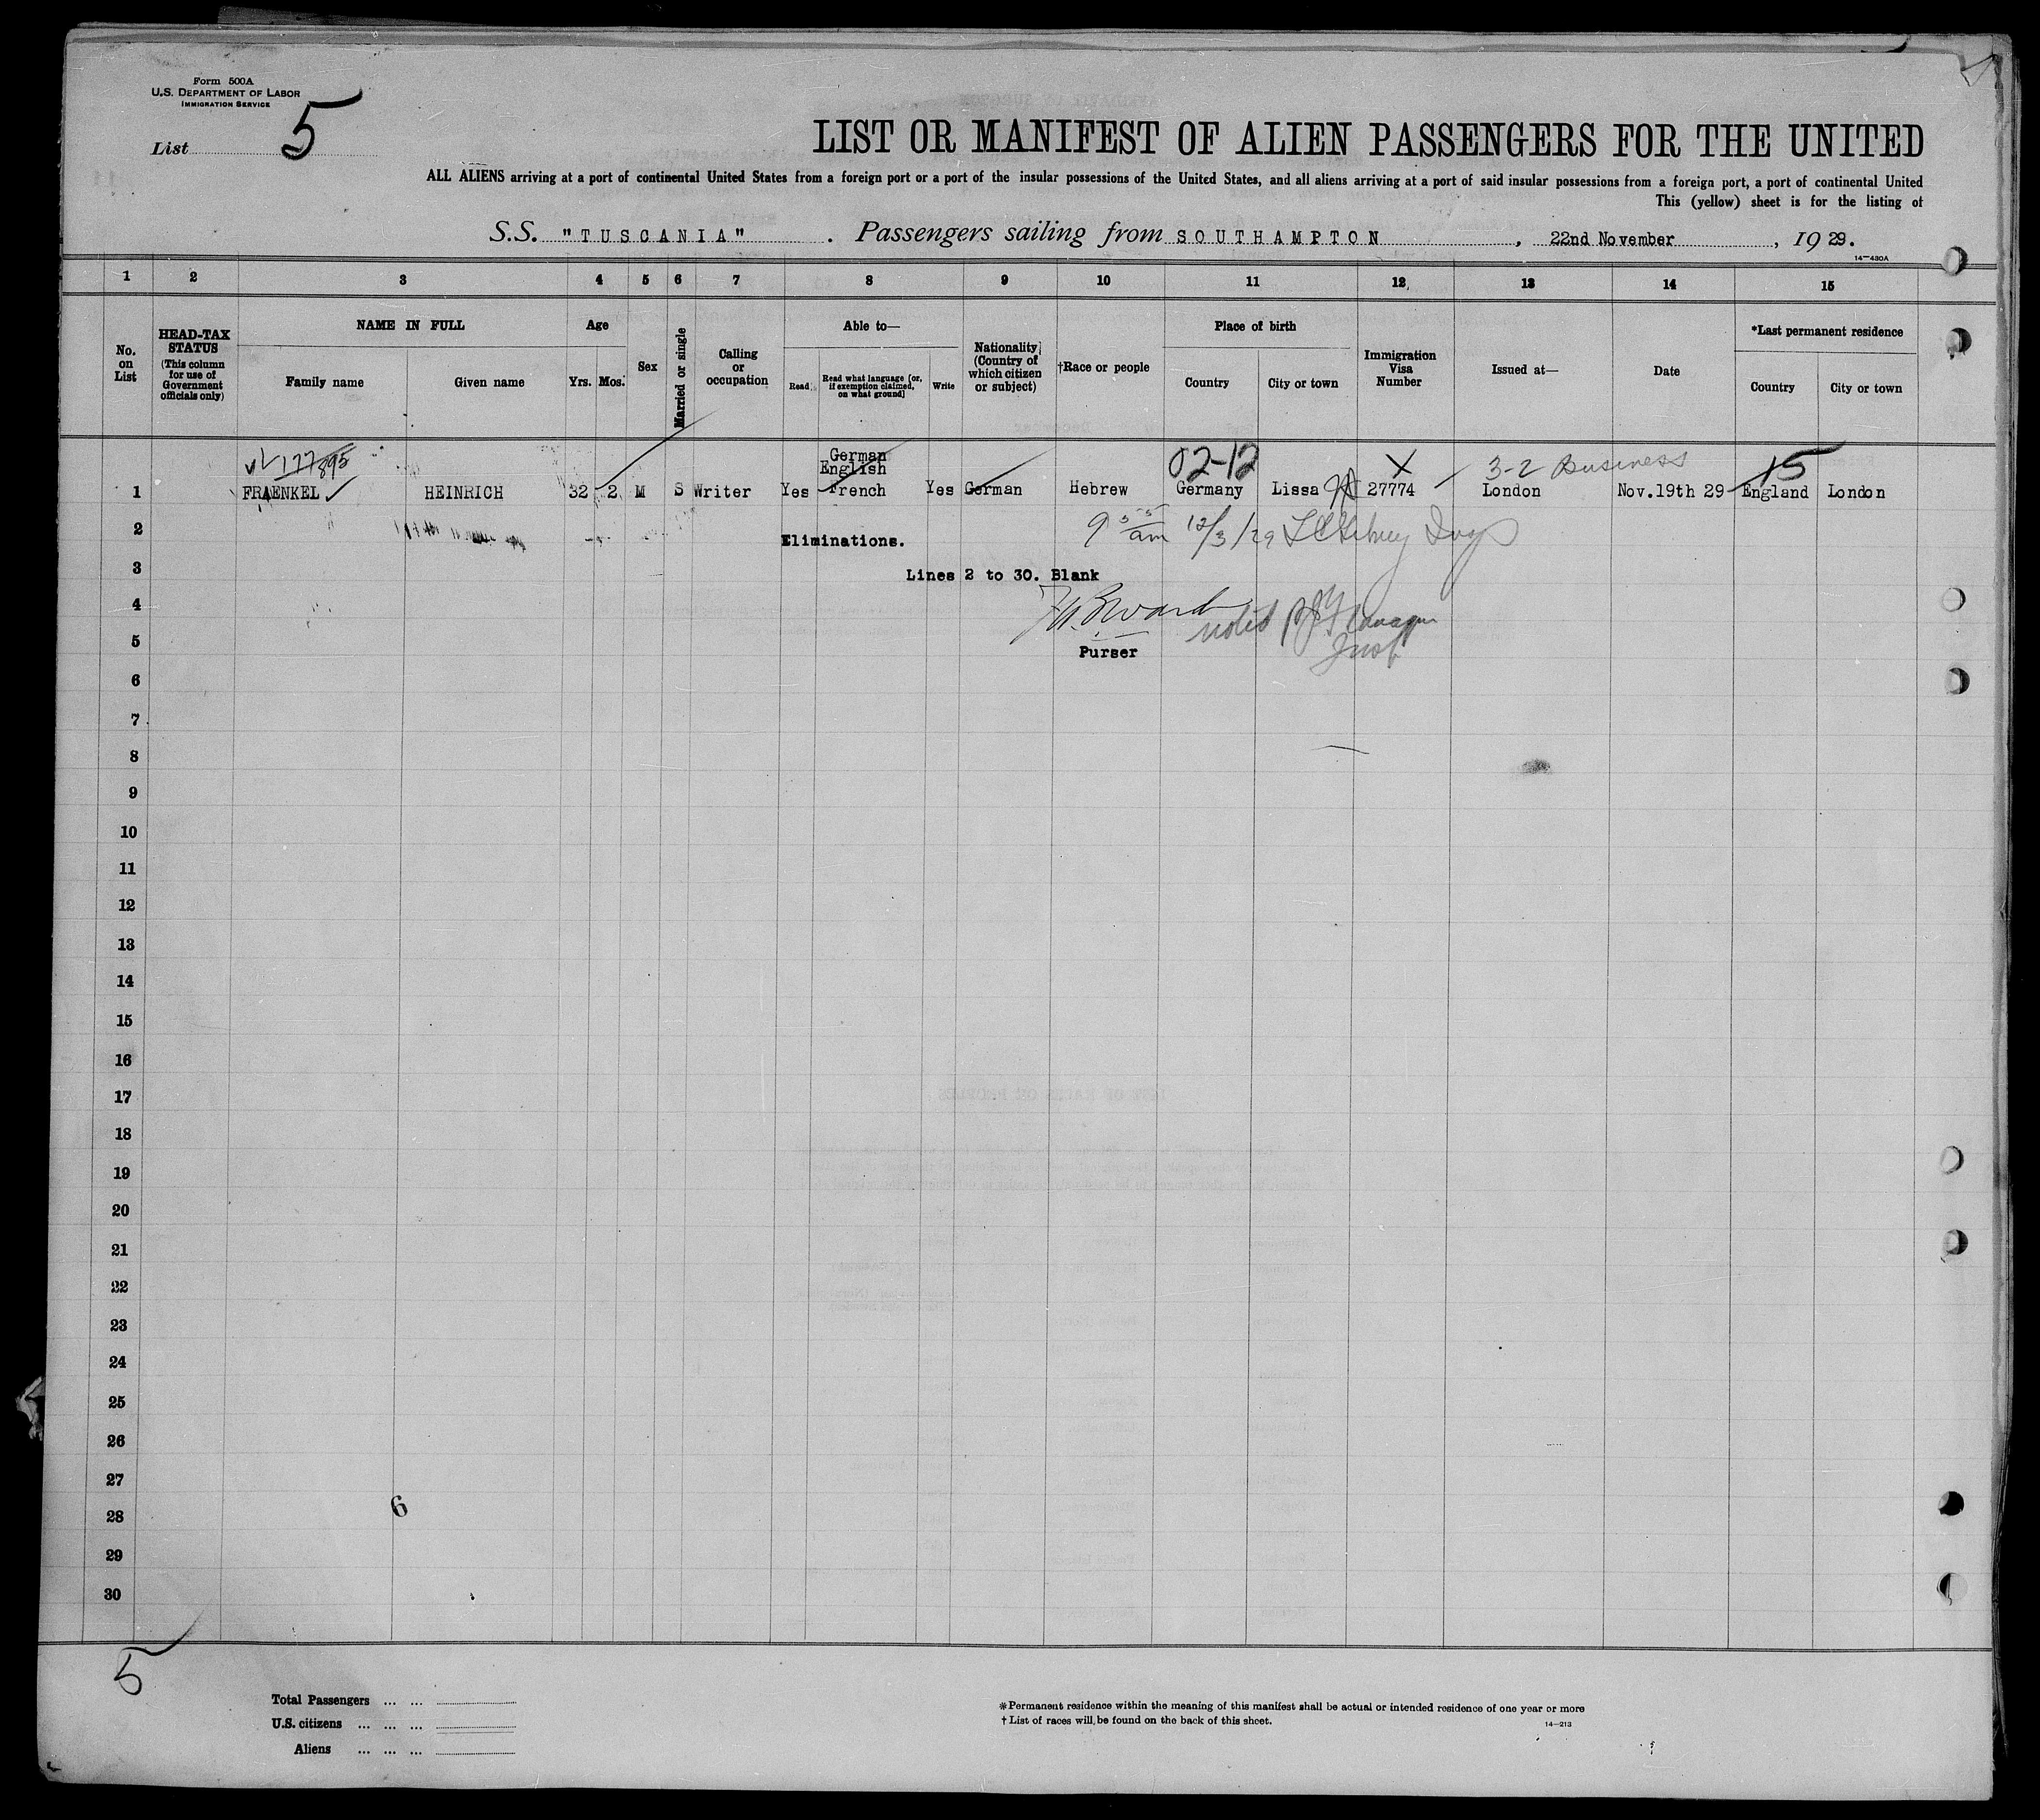 Form 500A
U.S. DEPARTMENT OF LABOR
IMMIGRATION SERVICE
List 5
LIST OR MANIFEST OF ALIEN PASSENGERS FOR THE UNITED
ALL ALIENS arriving at a port of continental United States from a foreign port or a port of the insular possessions of the United States, and all aliens arriving at a port of said insular possessions from a foreign port, a port of continental United
This (yellow) sheet is for the listing of
S.S. "TUSCANIA" . Passengers sailing from SOUTHAMPTON , 22nd November , 1929.
14-430A
1 2 3 4 5 6 7 8 9 10 11 12 13 14 15
No. on List
HEAD-TAX STATUS (This column for use of Government officials only)
NAME IN FULL
Family name Given name
Age
Yrs. Mos.
Sex
Married or single
Calling or occupation
Able to—
Read Read what language [or, if exemption claimed, on what ground] Write
Nationality (Country of which citizen or subject)
†Race or people
Place of birth
Country City or town
Immigration Visa Number
Issued at—
Date
*Last permanent residence
Country City or town
177895 02-12 X 3-2 Business 15
German
English
1 FRAENKEL HEINRICH 32 2 M S Writer Yes French Yes German Hebrew Germany Lissa 27774 London Nov.19th 29 England London
2 Eliminations. 9 55 am 12/3/29
3 Lines 2 to 30. Blank
4
noted
5 Purser
Insp
6
7
8
9
10
11
12
13
14
15
16
17
18
19
20
21
22
23
24
25
26
27
28 6
29
30
5
Total Passengers ... ...
U.S. citizens ... ... ...
Aliens ... ... ...
*Permanent residence within the meaning of this manifest shall be actual or intended residence of one year or more
†List of races will be found on the back of this sheet.
14-213